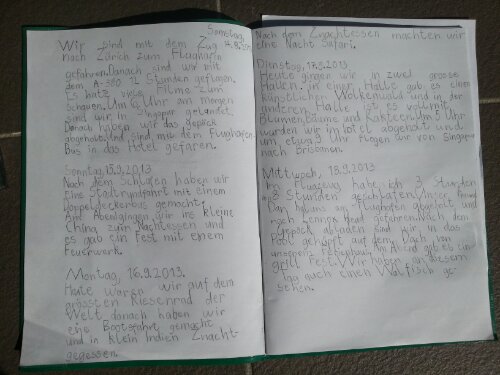 Samstag,
14.9.2013
Wir sind mit dem Zug
nach Zürich zum Flughafen
gefahren. Danach sind wir mit
dem A-380 12 Stunden geflogen.
Es hatz viele Filme zum
Schauen. Um 6 Uhr am morgen
sind wir in Singapur gelandet.
Danach haben wir das Gepäck
abgeholt und sind mit dem Flughafen
Bus in das Hotel gefaren.
Sonntag, 15.9.2013
Nach dem Schlafen haben wir
eine Stadtrundfahrt mit einem
Doppeldeckerbus gemacht.
Am Abend gingen wir ins kleine
China zum Nachtessen und
es gab ein Fest mit einem
Feuerwerk.
Montag, 16.9.2013.
Heute waren wir auf dem
grössten Riesenrad der
Welt, danach haben wir
eine Bootsfahrt gemacht
und in klein Indien Znacht-
gegessen.
Nach dem Znachtessen machten wir
eine Nacht Safari.
Dienstag, 17.9.2013
Heute gingen wir in zwei grosse
Hallen, in einer Halle gab es einen
künstlichen Wolkenwald und in der
anderen Halle ist es voll mit
Blumen, Bäume und Kakteen. Um 5 Uhr
wurden wir im Hotel abgeholt und
um etwa 9 Uhr flogen wir von Singapur
nach Brisbane.
Mittwoch, 18.9.2013
Im Flugzeug habe ich 3 Stunden
8 Stunden geschlafen. Unser Freund
Dan hat uns am Flughafen
nach Lennox Head gefahren. Nach dem
Gepäck abladen sind wir in das
Pool gehüpft auf dem Dach von
unserem Ferienhaus. Am Abend gab es ein
grill Fest. Wir haben am
sogar auch einen Walfisch ge-
sehen.